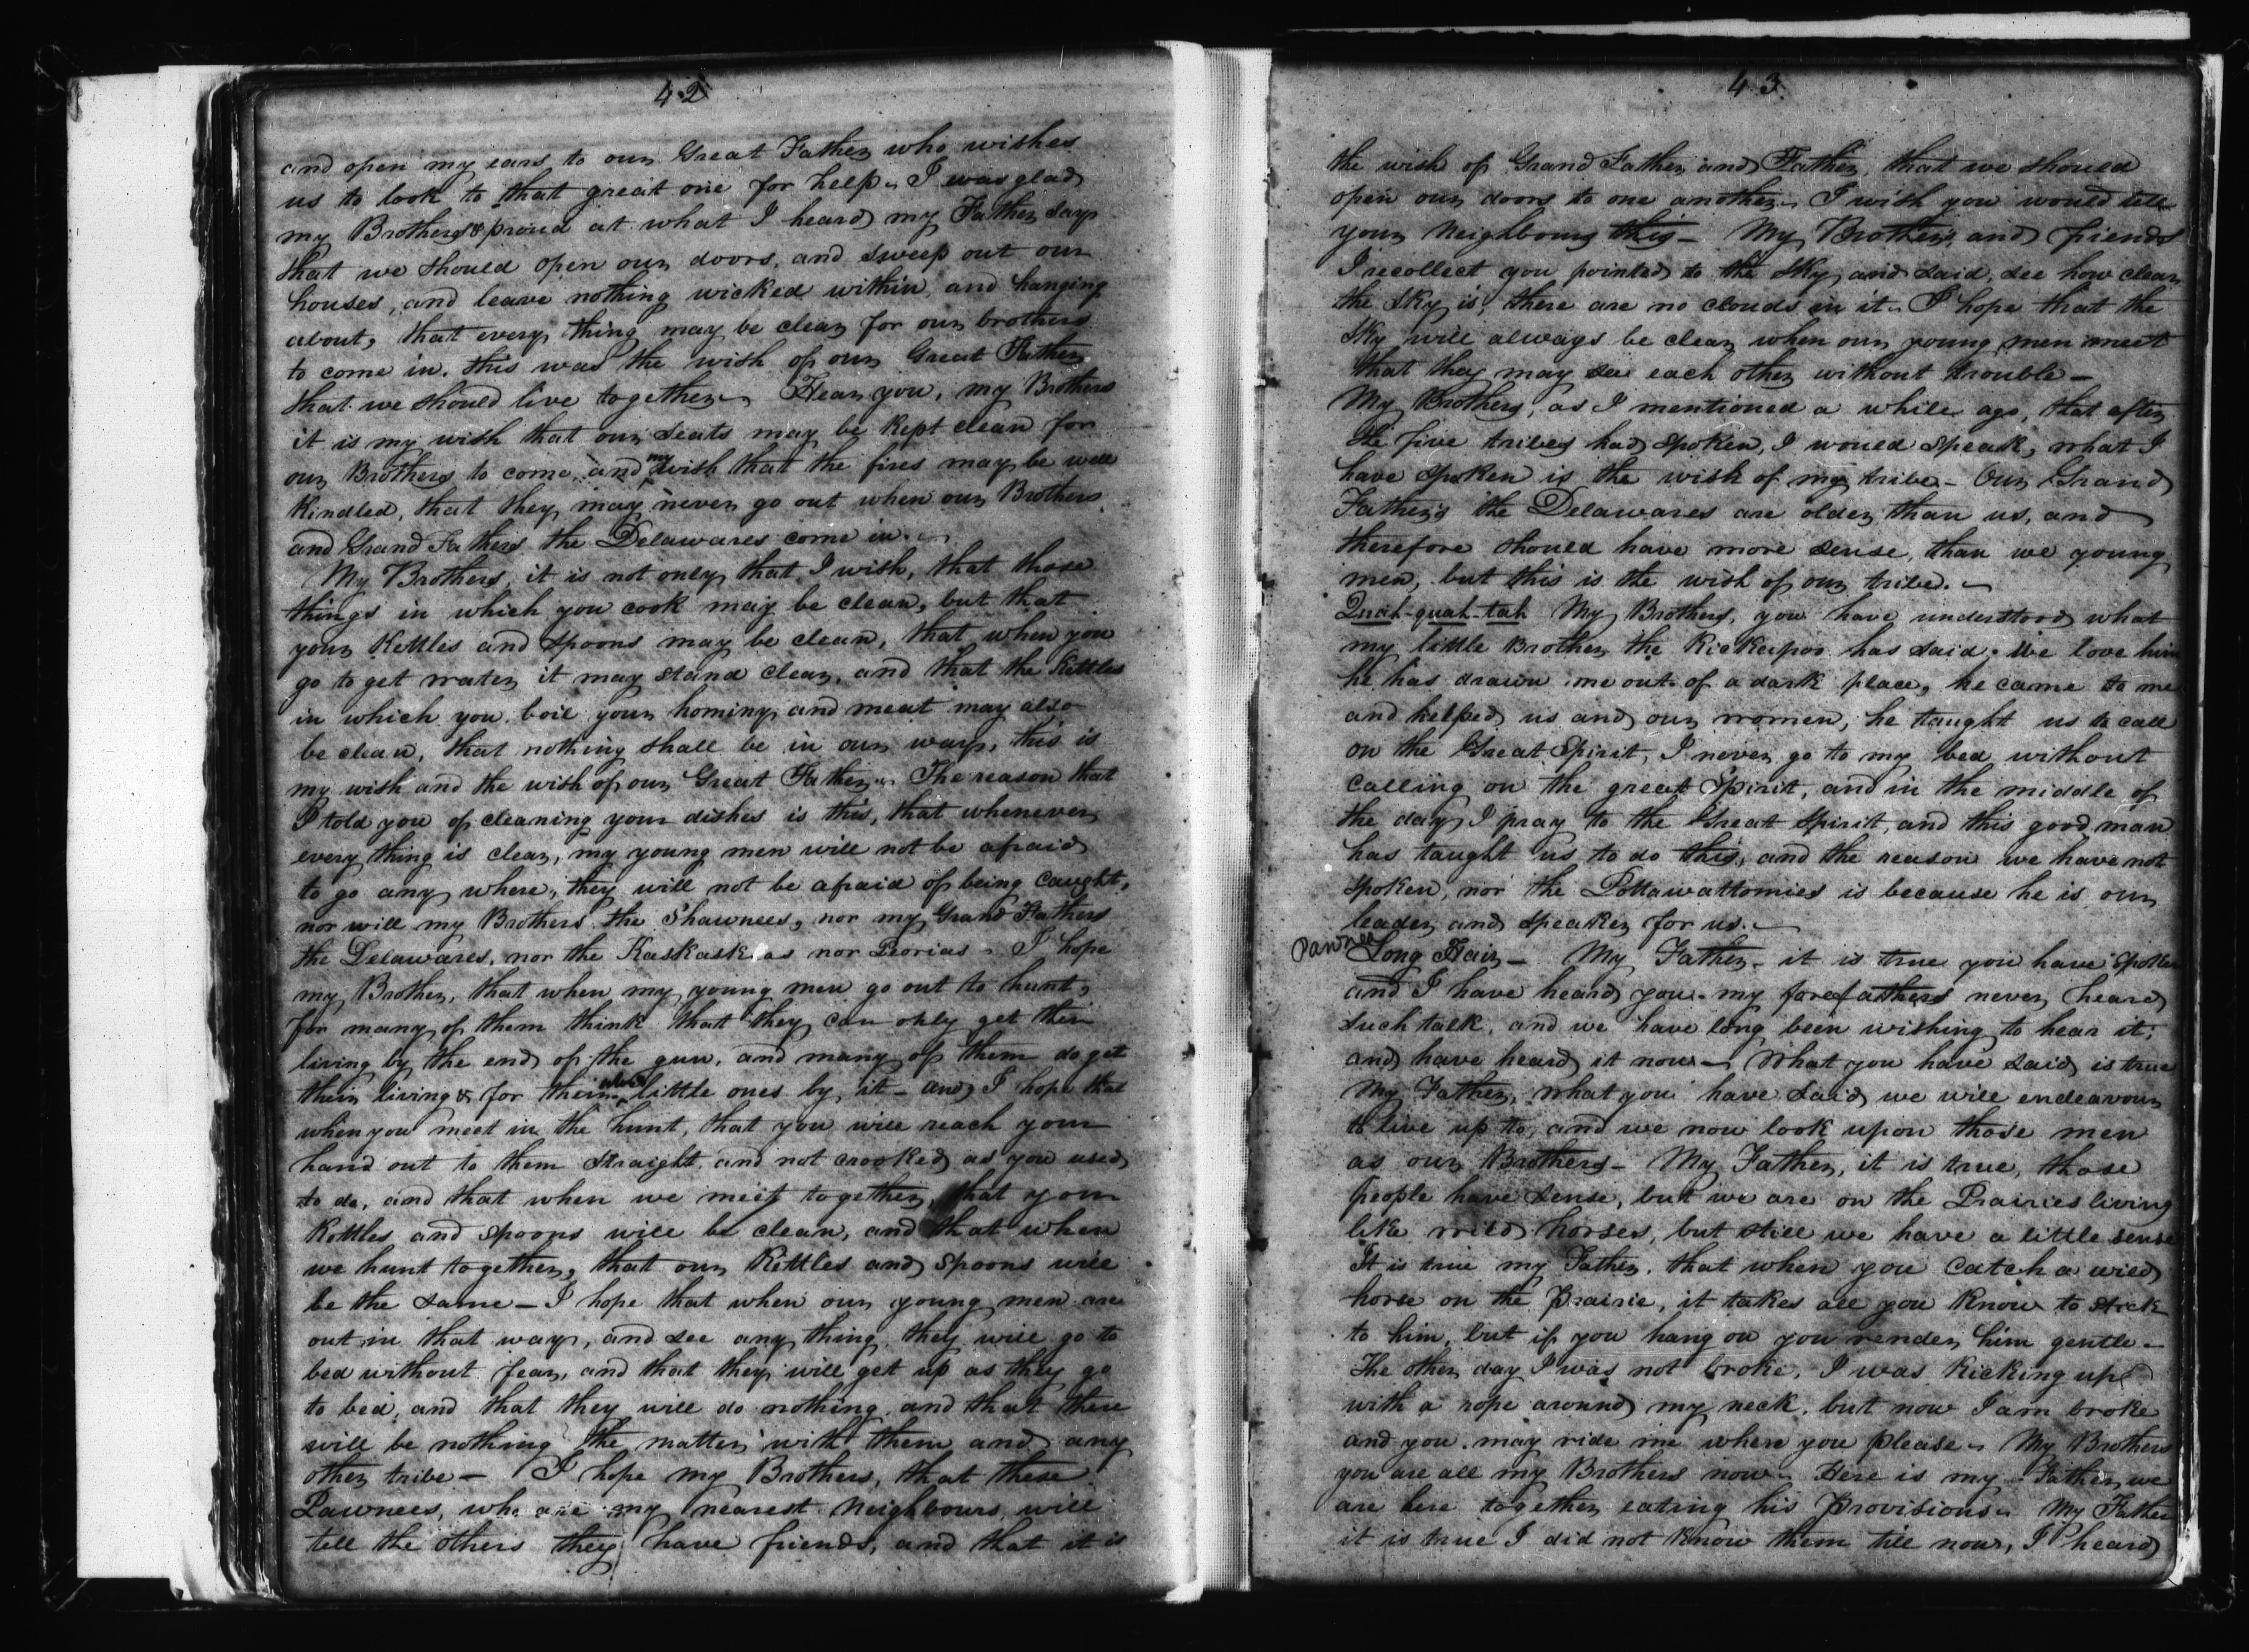 42
and open my ears to our Great Father who wishes
us to look to that great one for help. I was glad
my Brothers & proud at what I heard my Father say
that we should open our doors, and sweep out our
houses, and leave nothing wicked within and hanging
about, that every thing may be clear for our brothers
to come in. this was the wish of our Great Father
that we should live together. Hear you, my Brothers
it is my wish that our seats may be kept clean for
our Brothers to come, and my wish that the fires may be well
kindled, that they may never go out when our Brothers
and Grand Fathers the Delawares come in. -
My Brothers, it is not only that I wish, that those
things in which you cook may be clean, but that
your kettles and spoons may be clean, that when you
go to get water, it may stand clear, and that the kettles
in which you boil your hominy and meat may also
be clean, that nothing shall be in our way, this is
my wish and the wish of our Great Father. The reason that
I told you of cleaning your dishes is this, that whenever
every thing is clear, my young men will not be afraid
to go any where, they will not be afraid of being caught,
nor will my Brothers the Shawnees, nor my Grand Fathers
the Delawares, nor the Kaskaskias nor Peorias. I hope
my Brother, that when my young men go out to hunt,
for many of them think that they can only get their
living by the end of the gun, and many of them do get
their living & for their little ones by it - and I hope that
when you meet in the hunt, that you will reach your
hand out to them straight, and not crooked as you used
to do, and that when we meet together, that your
kettles and spoons will be clean, and that when
we hunt together, that our kettles and spoons will
be the same - I hope that when our young men are
out in that way, and see any thing, they will go to
bed without fear, and that they will get up as they go
to bed, and that they will do nothing and that there
will be nothing the matter with them and any
other tribe - I hope my Brothers, that these
Pawnees, who are my nearest Neighbours, will
tell the others they have friends, and that it is
43
the wish of Grand Father and Father, that we should
open our doors to one another. I wish you would tell
your Neighbours this - My Brothers and friends
I recollect you pointed to the sky and said, see how clear
the sky is, there are no clouds in it. I hope that the
sky will always be clear when our young men meet
that they may see each other without trouble -
My Brothers, as I mentioned a while ago, that after
the five tribes had spoken, I would speak, what I
have spoken is the wish of my tribe - Our Grand
Fathers the Delawares are older than us, and
therefore should have more sense, than we young
men, but this is the wish of our tribe. -
Quah-quah-tah My Brothers, you have understood what
my little Brother the Kickapoo has said. We love him
he has drawn me out of a dark place, he came to me
and helped us and our women, he taught us to call
on the Great Spirit, I never go to my bed without
calling on the great Spirit, and in the middle of
the day I pray to the Great Spirit, and this good man
has taught us to do this, and the reason we have not
spoken, nor the Pottawattomies is because he is our
leader and speaker for us. -
Pawnee Long Hair - My Father, it is true you have spoken
and I have heard you. my forefathers never heard
such talk, and we have long been wishing to hear it,
and have heard it now - What you have said is true
My Father, what you have said we will endeavour
to live up to, and we now look upon those men
as our Brothers - My Father, it is true, those
people have sense, but we are on the Prairies living
like wild horses, but still we have a little sense
It is true my Father, that when you catch a wild
horse on the prairie, it takes all you know to stick
to him, but if you hang on you render him gentle -
The other day I was not broke, I was kicking up
with a rope around my neck, but now I am broke
and you may ride me where you please. My Brothers
you are all my Brothers now. Here is my Father, we
are here together eating his provisions. My Father
it is true I did not know them till now, I heard